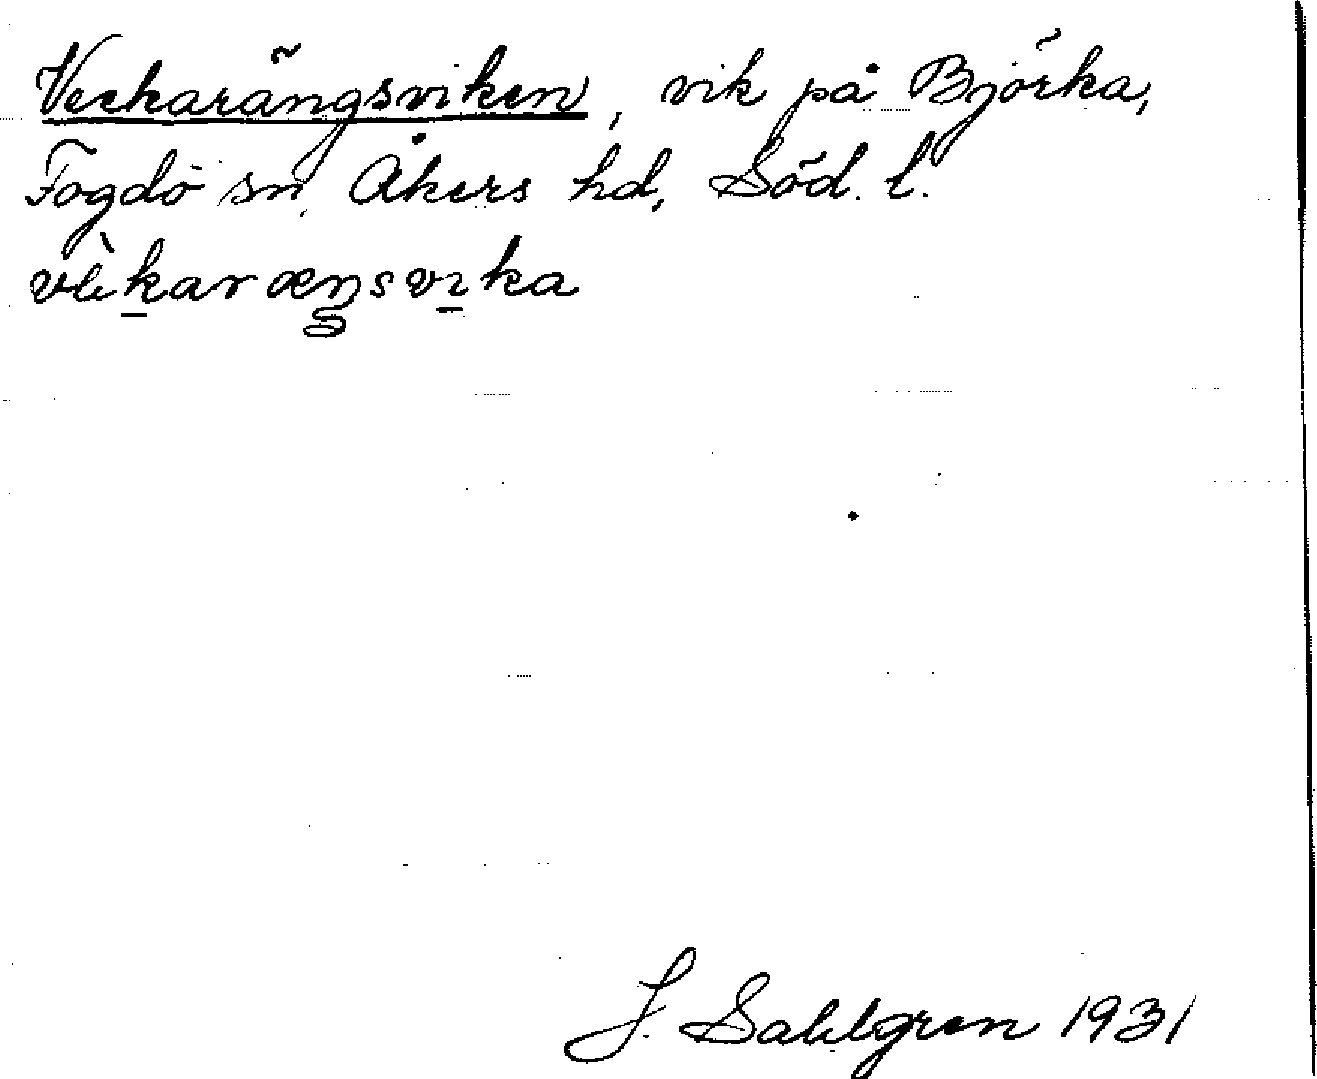 Veckarängsviken, vik på Björka,
Fogdö sn, Åkers hd, Söd. l.
vèkaræŋsvika
J. Sahlgren 1931